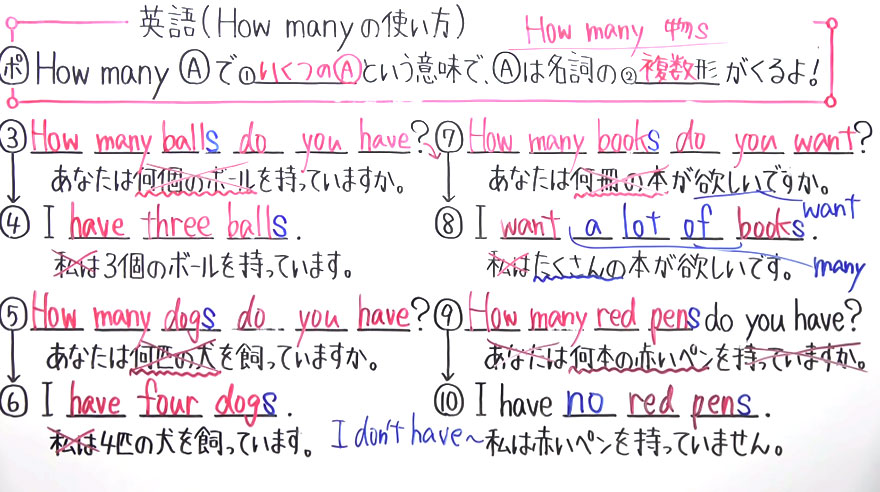 英語(How manyの使い方)
How many 物s
ポ How many Ⓐで①いくつのⒶという意味で、Ⓐは名詞の②複数形がくるよ!
③ How many balls do you have?
あなたは何個のボールを持っていますか。
④ I have three balls.
私は3個のボールを持っています。
⑤ How many dogs do you have?
あなたは何匹の犬を飼っていますか。
⑥ I have four dogs.
私は4匹の犬を飼っています。
⑦ How many books do you want?
あなたは何冊の本が欲しいですか。
want
⑧ I want a lot of books.
私はたくさんの本が欲しいです。
many
⑨ How many red pens do you have?
あなたは何本の赤いペンを持っていますか。
⑩ I have no red pens.
I don't have~
私は赤いペンを持っていません。